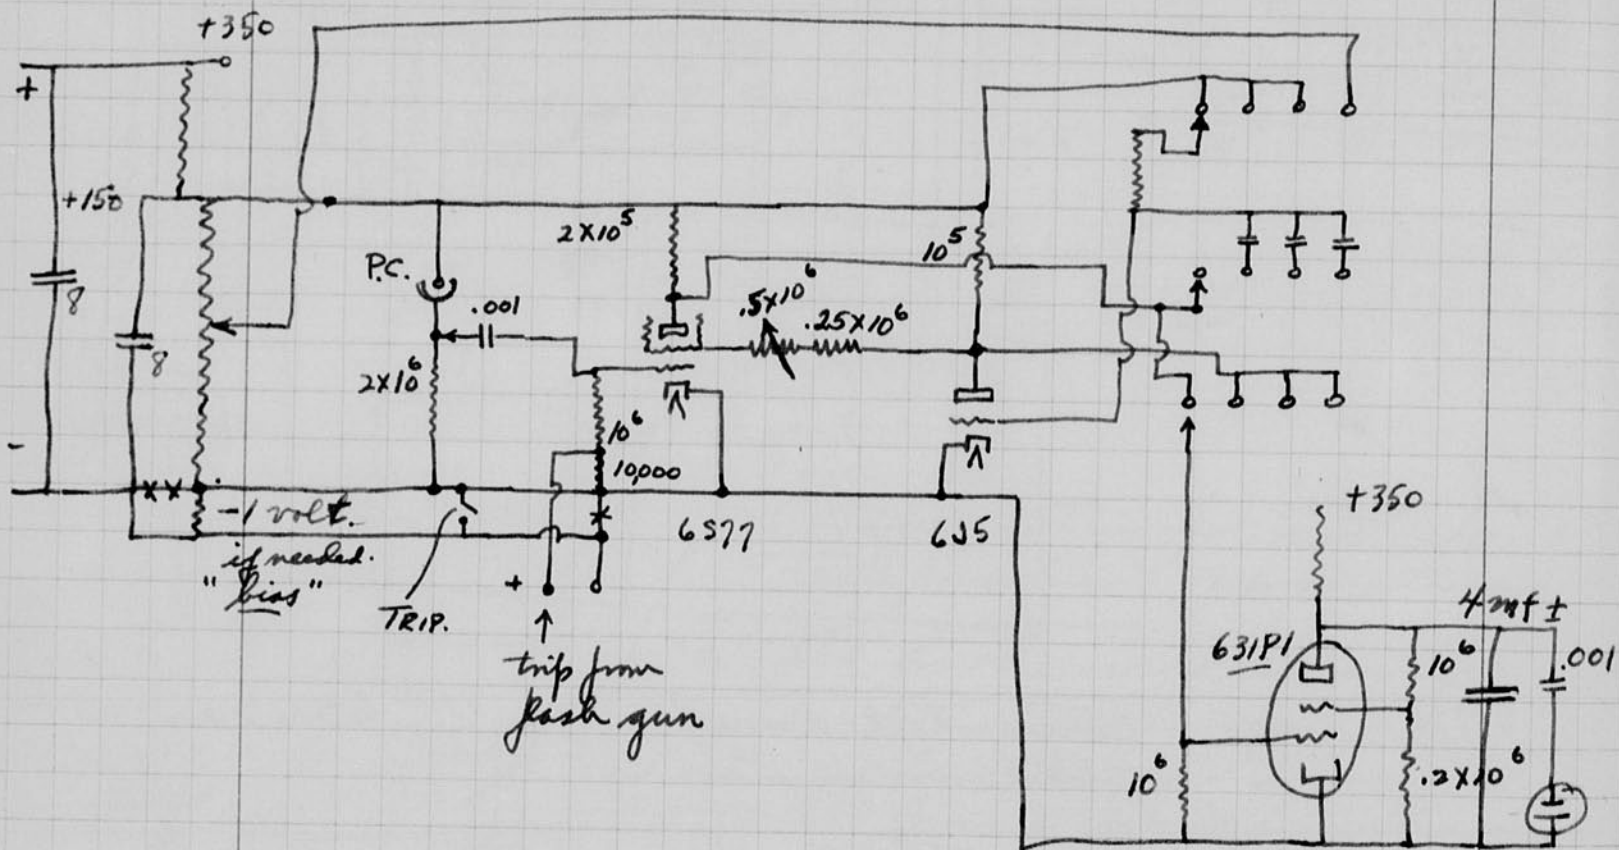 +350
+
+150
8
8
-
P.C.
.001
2×10⁶
2×10⁵
.5×10⁶
.25×10⁶
10⁵
10⁶
10,000
××
-1 volt.
if needed.
"bias"
TRIP.
×
+
trip from
flash gun
6SJ7
6J5
+350
631P1
4 mf ±
10⁶
.001
10⁶
.2×10⁶